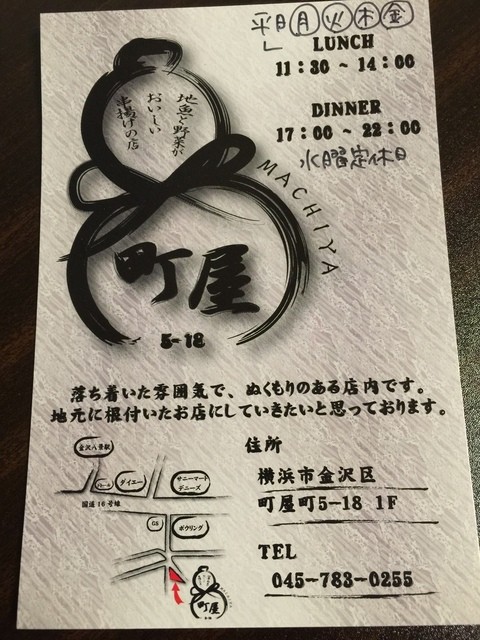 平日月火木金
LUNCH
11:30 ~ 14:00
DINNER
17:00 ~ 22:00
水曜定休日
地魚と野菜が
おいしい
串揚げの店
MACHIYA
町屋
5-18
落ち着いた雰囲気で、ぬくもりのある店内です。
地元に根付いたお店にしていきたいと思っております。
金沢八景駅
ダイエー
サニーマート
デニーズ
国道16号線
GS
ボウリング
町屋
住所
横浜市金沢区
町屋町5-18 1F
TEL
045-783-0255